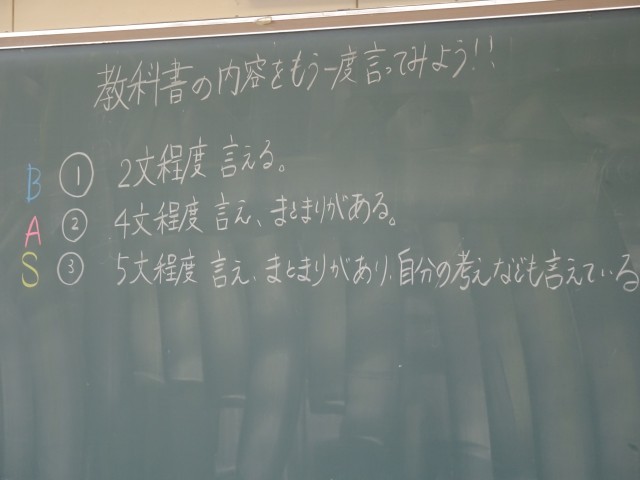 教科書の内容をもう一度言ってみよう!!
B ① 2文程度 言える。
A ② 4文程度 言え、まとまりがある。
S ③ 5文程度 言え、まとまりがあり、自分の考えなども言えている